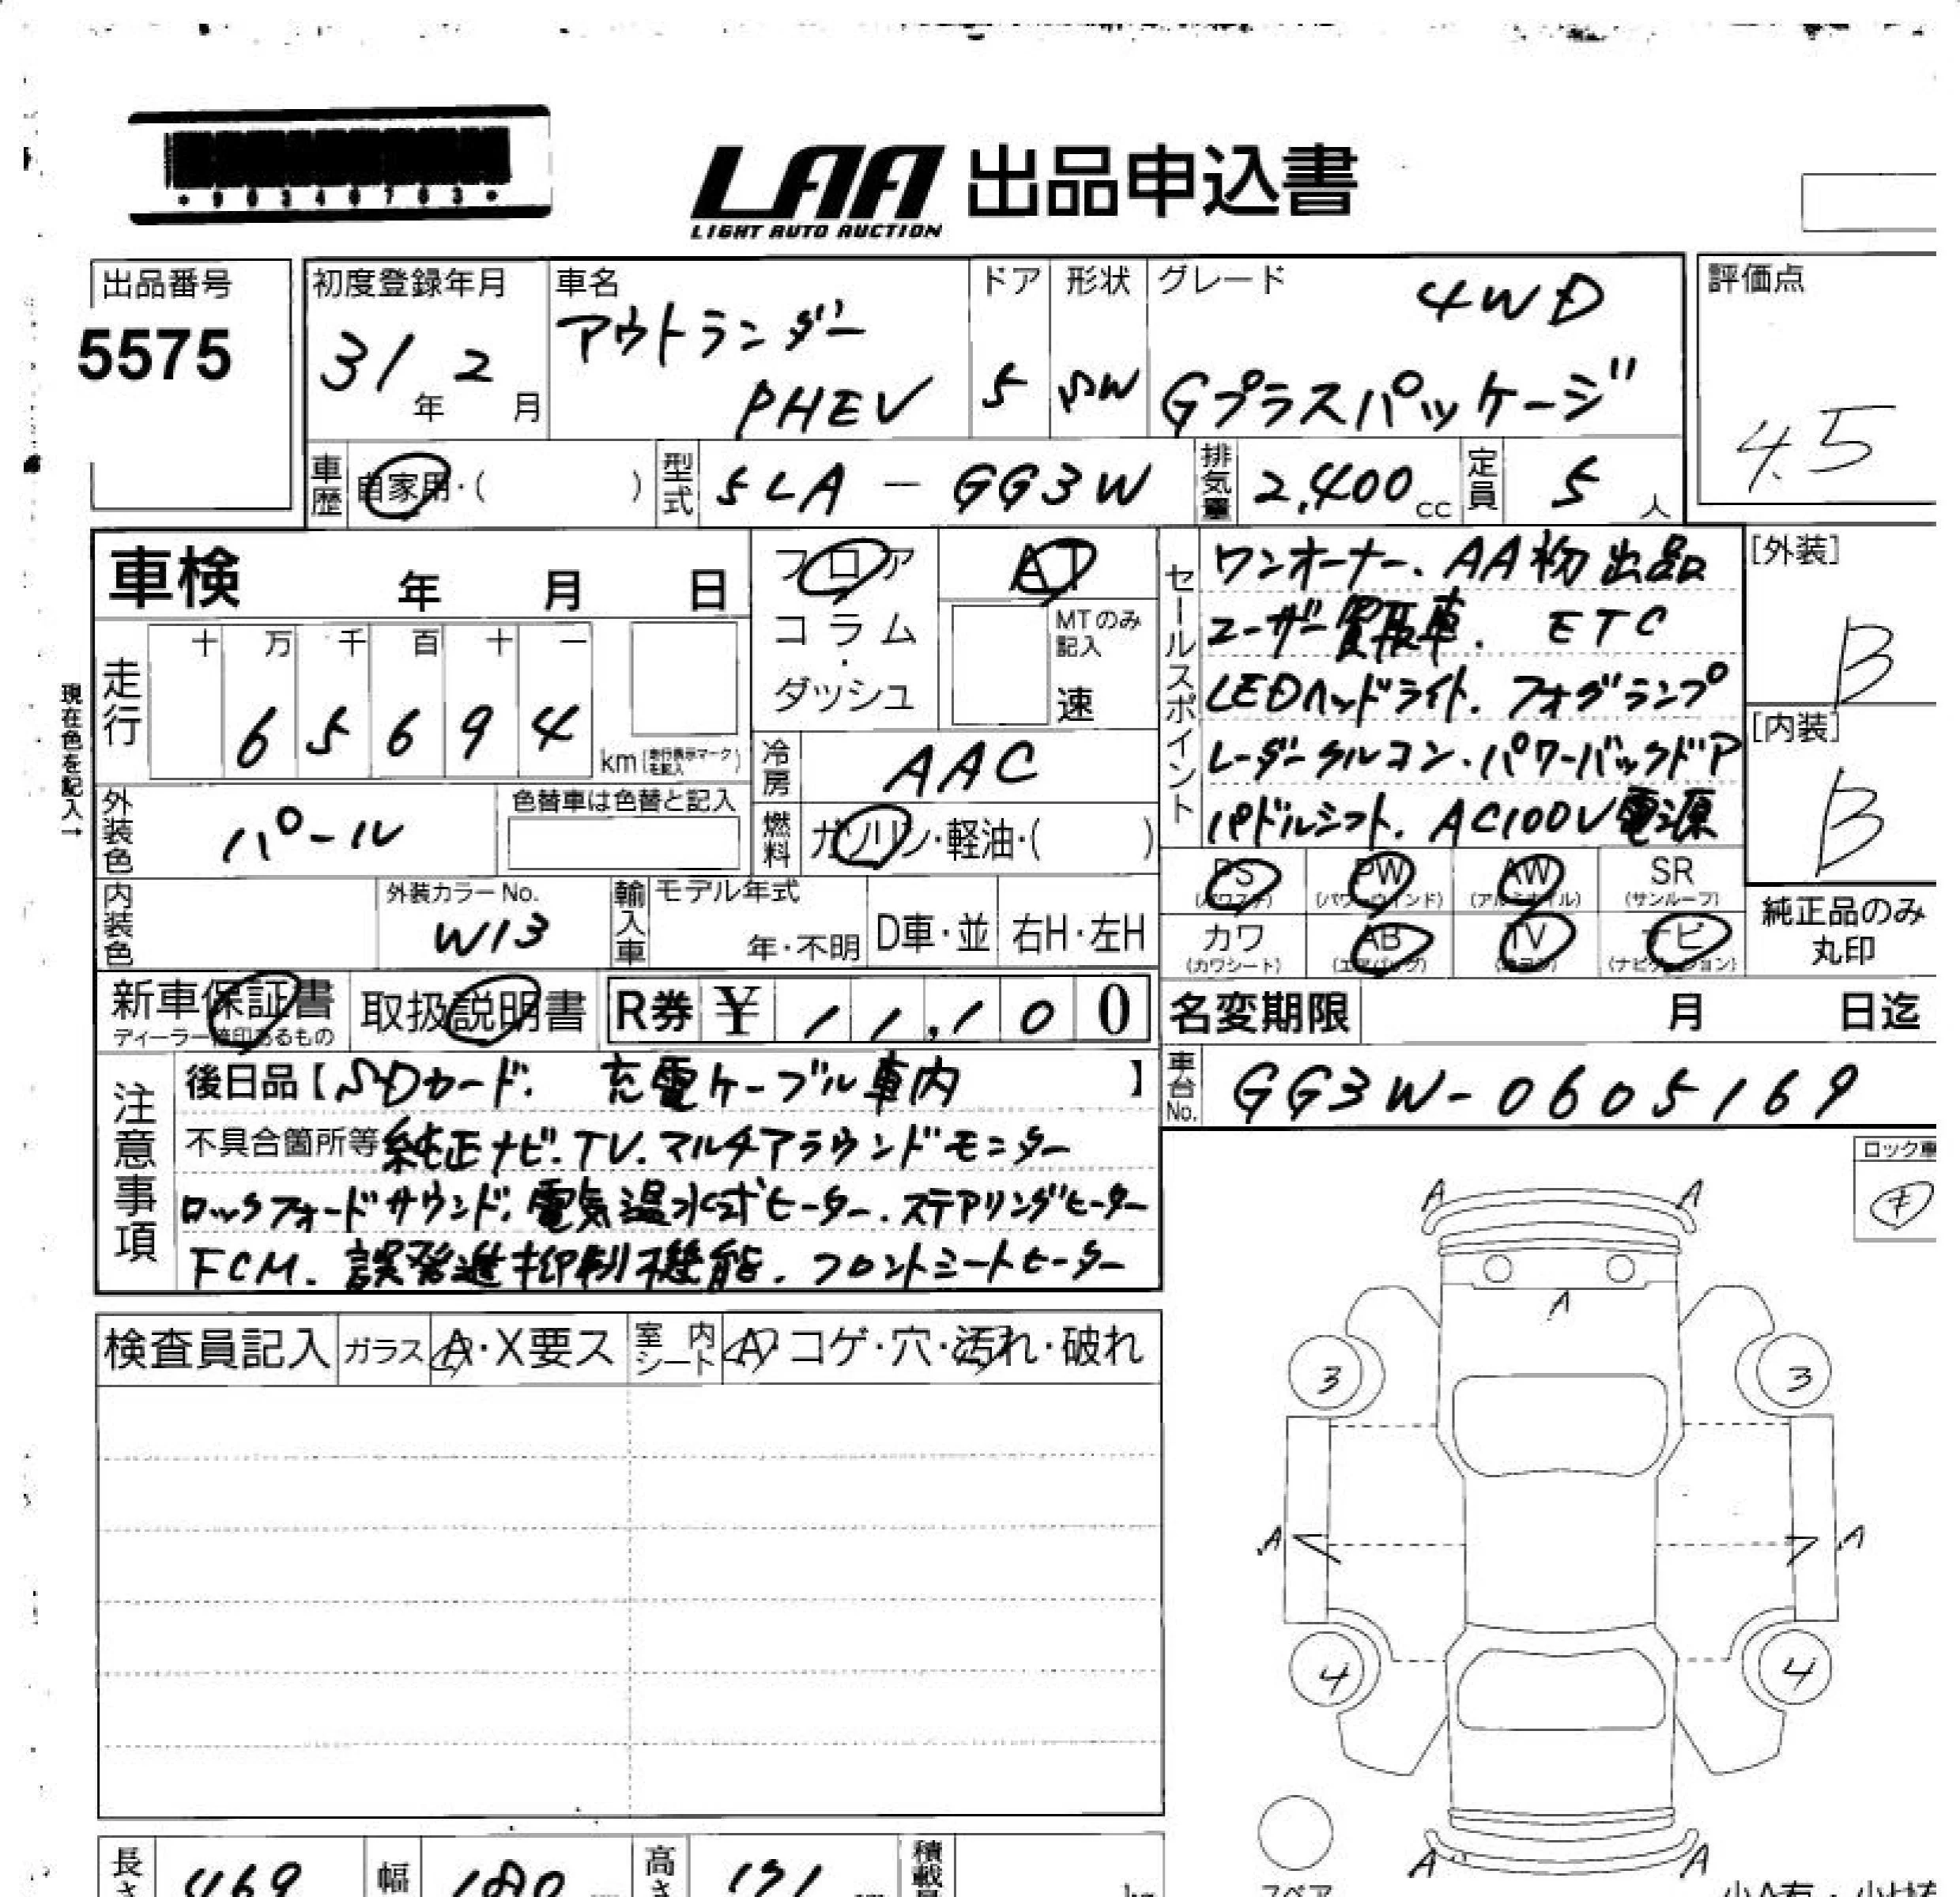 LAA 出品申込書
LIGHT AUTO AUCTION
出品番号
5575
初度登録年月
31年 2月
車名
アウトランダー
PHEV
ドア
5
形状
SW
グレード
4WD
Gプラスパッケージ
評価点
4.5
車歴 自家用・( )
型式 5LA-GG3W
排気量 2,400cc
定員 5人
車検 年 月 日
フロア
コラム
・
ダッシュ
AT
MTのみ
記入
速
セールスポイント
ワンオーナー、AA初出品
ユーザー買取車、ETC
LEDヘッドライト、フォグランプ
レーダークルコン・パワーバックドア
パドルシフト、AC100V電源
[外装]
B
[内装]
B
現在色を記入→
走行
十 万 千 百 十 一
6 5 6 9 4
km (走行表示マークを記入)
冷房 AAC
外装色 パール
色替車は色替と記入
燃料 ガソリン・軽油・( )
PS (パワステ)
PW (パワーウインド)
AW (アルミホイル)
SR (サンルーフ)
カワ (カワシート)
AB (エアバッグ)
TV
ナビ (ナビゲーション)
純正品のみ
丸印
内装色
外装カラーNo.
W13
輸入車
モデル年式
年・不明
D車・並
右H・左H
新車保証書
ディーラー捺印あるもの
取扱説明書
R券 ¥ 11,100
名変期限 月 日迄
注意事項
後日品【SDカード、充電ケーブル車内】
不具合箇所等 純正ナビ、TV、マルチアラウンドモニター
ロックフォードサウンド、電気温水式ヒーター、ステアリングヒーター
FCM、誤発進抑制機能、フロントシートヒーター
車台No. GG3W-0605169
検査員記入
ガラス A・X要ス
室内シート A コゲ・穴・汚れ・破れ
ロック車
キ
A A
A
3 3
A A
4 4
A A
スペア
長さ 469
幅 180
高さ 171